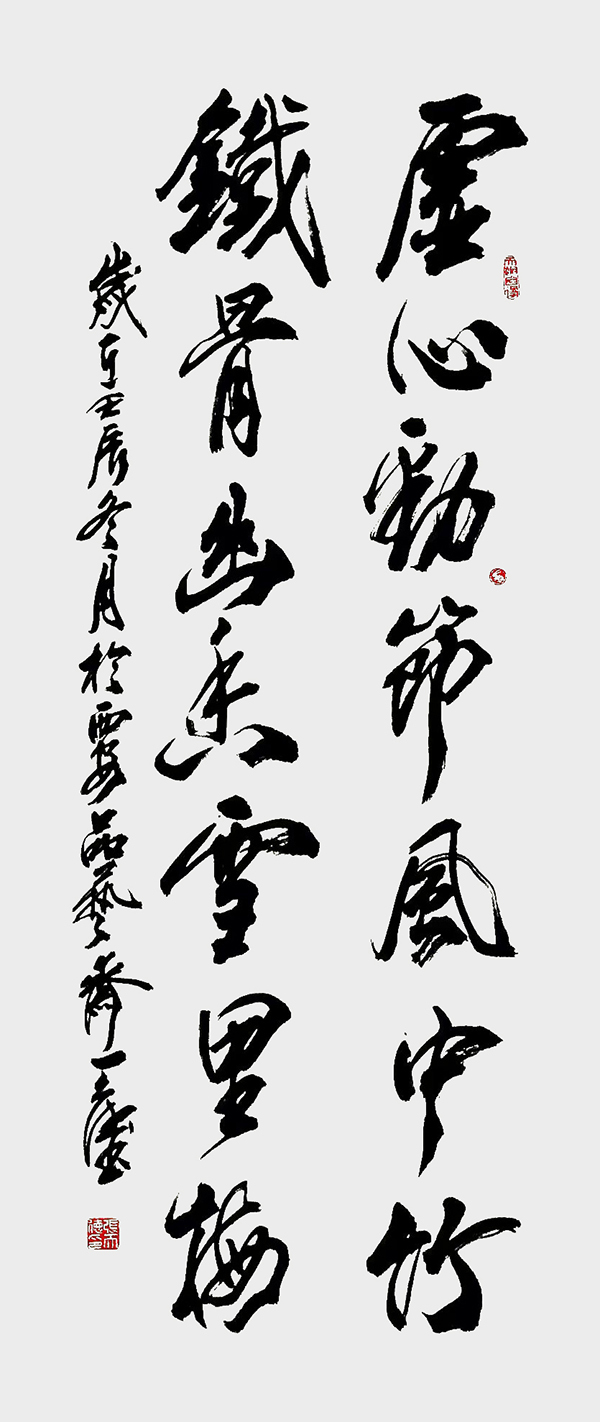 虛心勁節風中竹
鐵骨幽香雪里梅
歲在壬辰冬月於雲品藝齋一